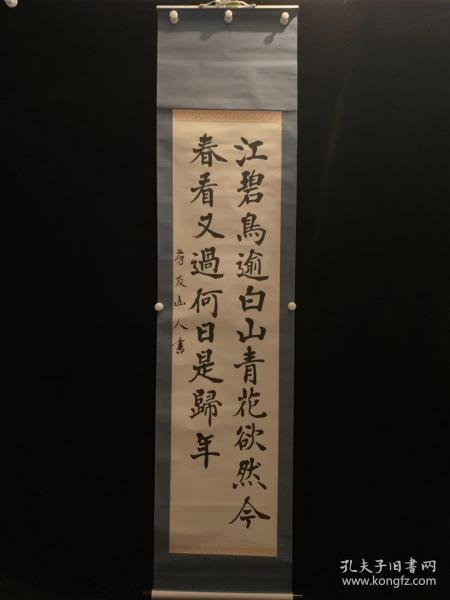 江碧鳥逾白山青花欲然今
春看又過何日是歸年
友山人書
孔夫子旧书网
www.kongfz.com